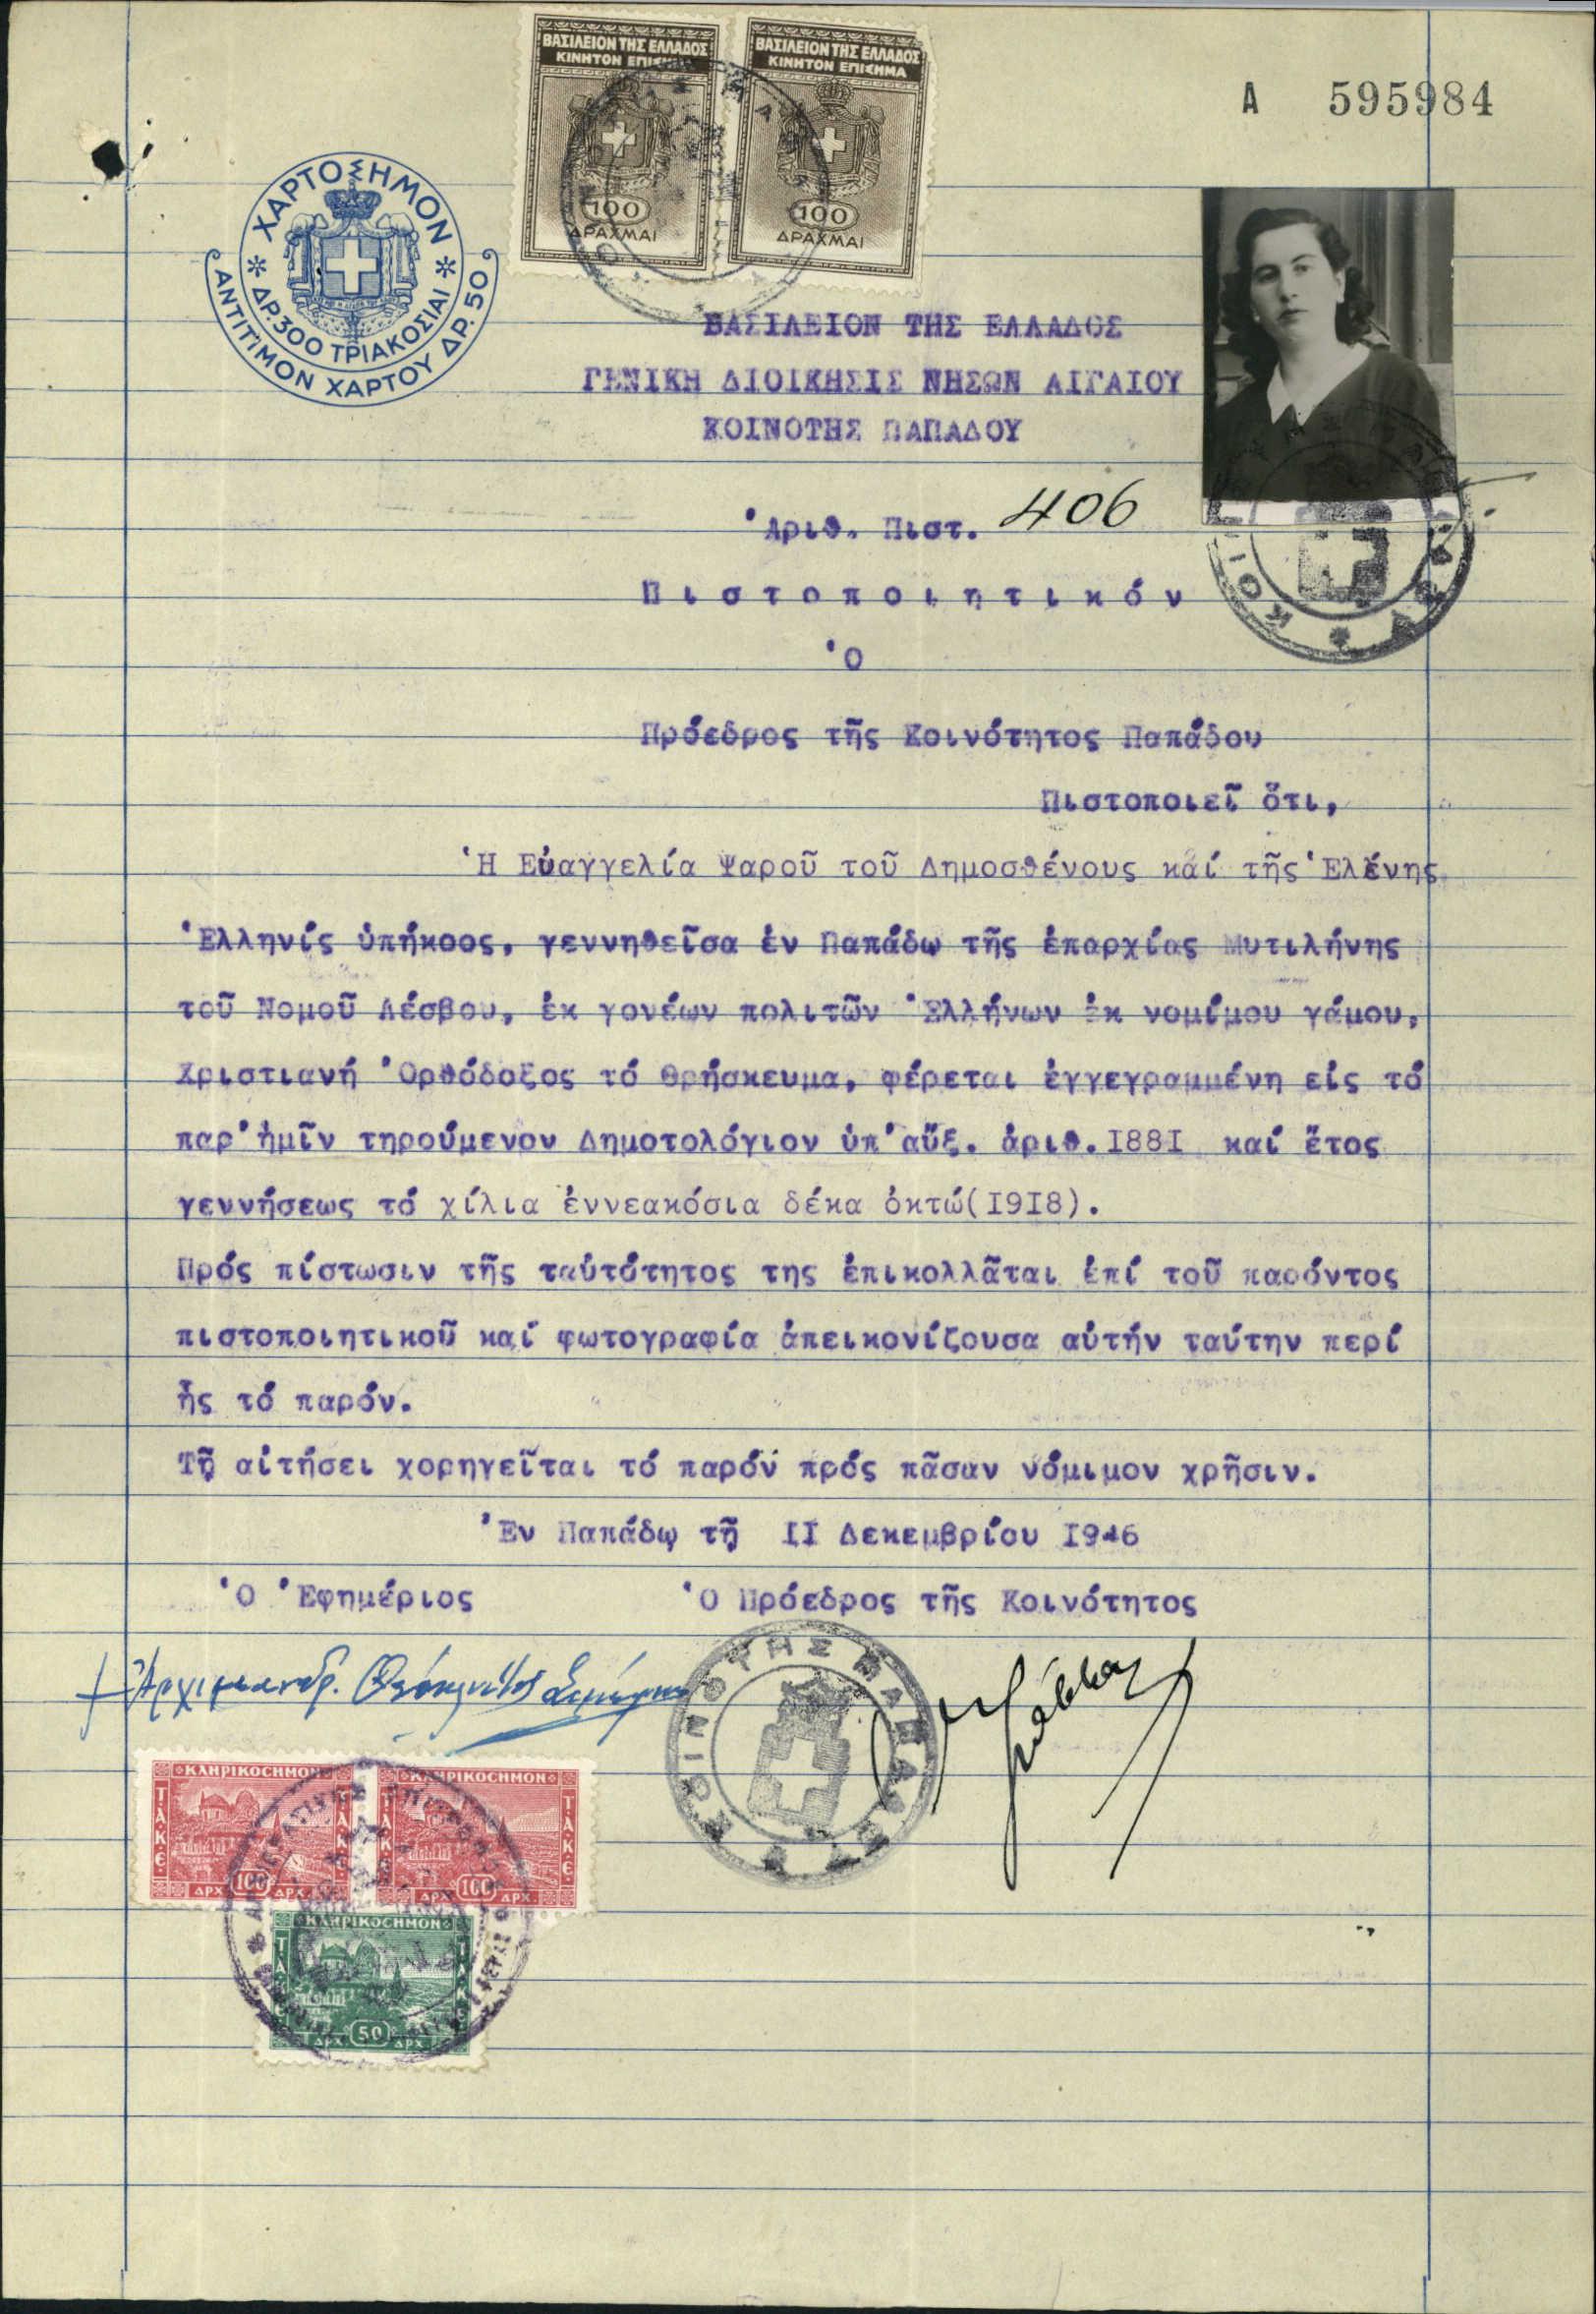 ΒΑΣΙΛΕΙΟΝ ΤΗΣ ΕΛΛΑΔΟΣ
ΚΙΝΗΤΟΝ ΕΠΙΣΗΜΑ
100
ΔΡΑΧΜΑΙ
ΒΑΣΙΛΕΙΟΝ ΤΗΣ ΕΛΛΑΔΟΣ
ΚΙΝΗΤΟΝ ΕΠΙΣΗΜΑ
100
ΔΡΑΧΜΑΙ
Α 595984
ΧΑΡΤΟΣΗΜΟΝ
ΔΡ. 300 ΤΡΙΑΚΟΣΙΑΙ
ΑΝΤΙΤΙΜΟΝ ΧΑΡΤΟΥ ΔΡ. 50
ΒΑΣΙΛΕΙΟΝ ΤΗΣ ΕΛΛΑΔΟΣ
ΓΕΝΙΚΗ ΔΙΟΙΚΗΣΙΣ ΝΗΣΩΝ ΑΙΓΑΙΟΥ
ΚΟΙΝΟΤΗΣ ΠΑΠΑΔΟΥ
Ἀριθ. Πιστ. 406
Πιστοποιητικόν
Ὁ
Πρόεδρος τῆς Κοινότητος Παπάδου
Πιστοποιεῖ ὅτι,
Ἡ Εὐαγγελία Ψαροῦ τοῦ Δημοσθένους καί τῆς Ἑλένης
Ἑλληνίς ὑπήκοος, γεννηθεῖσα ἐν Παπάδω τῆς ἐπαρχίας Μυτιλήνης
τοῦ Νομοῦ Λέσβου, ἐκ γονέων πολιτῶν Ἑλλήνων ἐκ νομίμου γάμου,
Χριστιανή Ὀρθόδοξος τό θρήσκευμα, φέρεται ἐγγεγραμμένη εἰς τό
παρ' ἡμῖν τηρούμενον Δημοτολόγιον ὑπ' αὔξ. ἀριθ. Ι88Ι καί ἔτος
γεννήσεως τό χίλια ἐννεακόσια δέκα ὀκτώ(Ι9Ι8).
Πρός πίστωσιν τῆς ταὐτότητος της ἐπικολλᾶται ἐπί τοῦ παρόντος
πιστοποιητικοῦ καί φωτογραφία ἀπεικονίζουσα αὐτήν ταύτην περί
ἧς τό παρόν.
Τῇ αἰτήσει χορηγεῖται τό παρόν πρός πᾶσαν νόμιμον χρῆσιν.
Ἐν Παπάδῳ τῇ ΙΙ Δεκεμβρίου Ι946
Ὁ Ἐφημέριος Ὁ Πρόεδρος τῆς Κοινότητος
Ἀρχιμανδρ.
ΚΟΙΝΟΤΗΣ ΠΑΠΑΔΟΥ
ΚΛΗΡΙΚΟCΗΜΟΝ
Τ.Α.Κ.Ε.
ΔΡΧ. 100 ΔΡΧ.
ΚΛΗΡΙΚΟCΗΜΟΝ
Τ.Α.Κ.Ε.
ΔΡΧ. 100 ΔΡΧ.
ΚΛΗΡΙΚΟCΗΜΟΝ
Τ.Α.Κ.Ε.
ΔΡΧ. 50 ΔΡΧ.